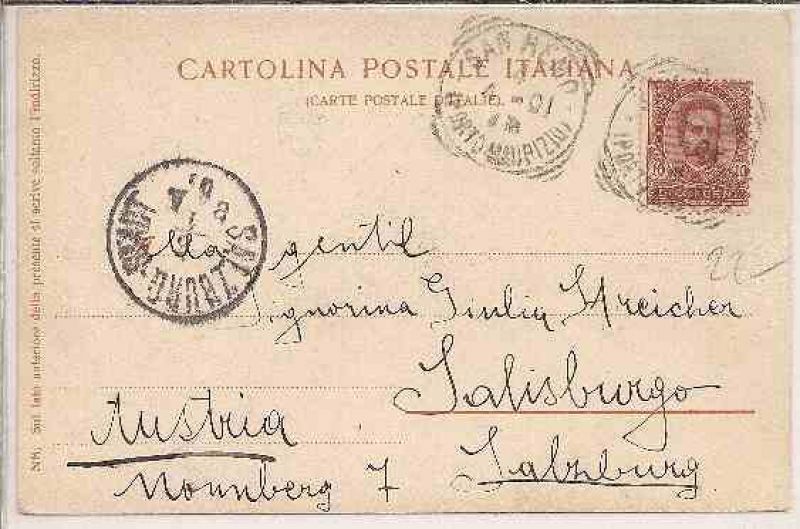 CARTOLINA POSTALE ITALIANA
(CARTE POSTALE D'ITALIE).
SAN REMO
(PORTO MAURIZIO)
10 10
SALZBURG STADT
Alla gentil
Signorina Giulia Streicher
Salisburgo
Austria
Salzburg
Nonnberg 7
22
NB. Sul lato anteriore della presente si scrive soltanto l'indirizzo.